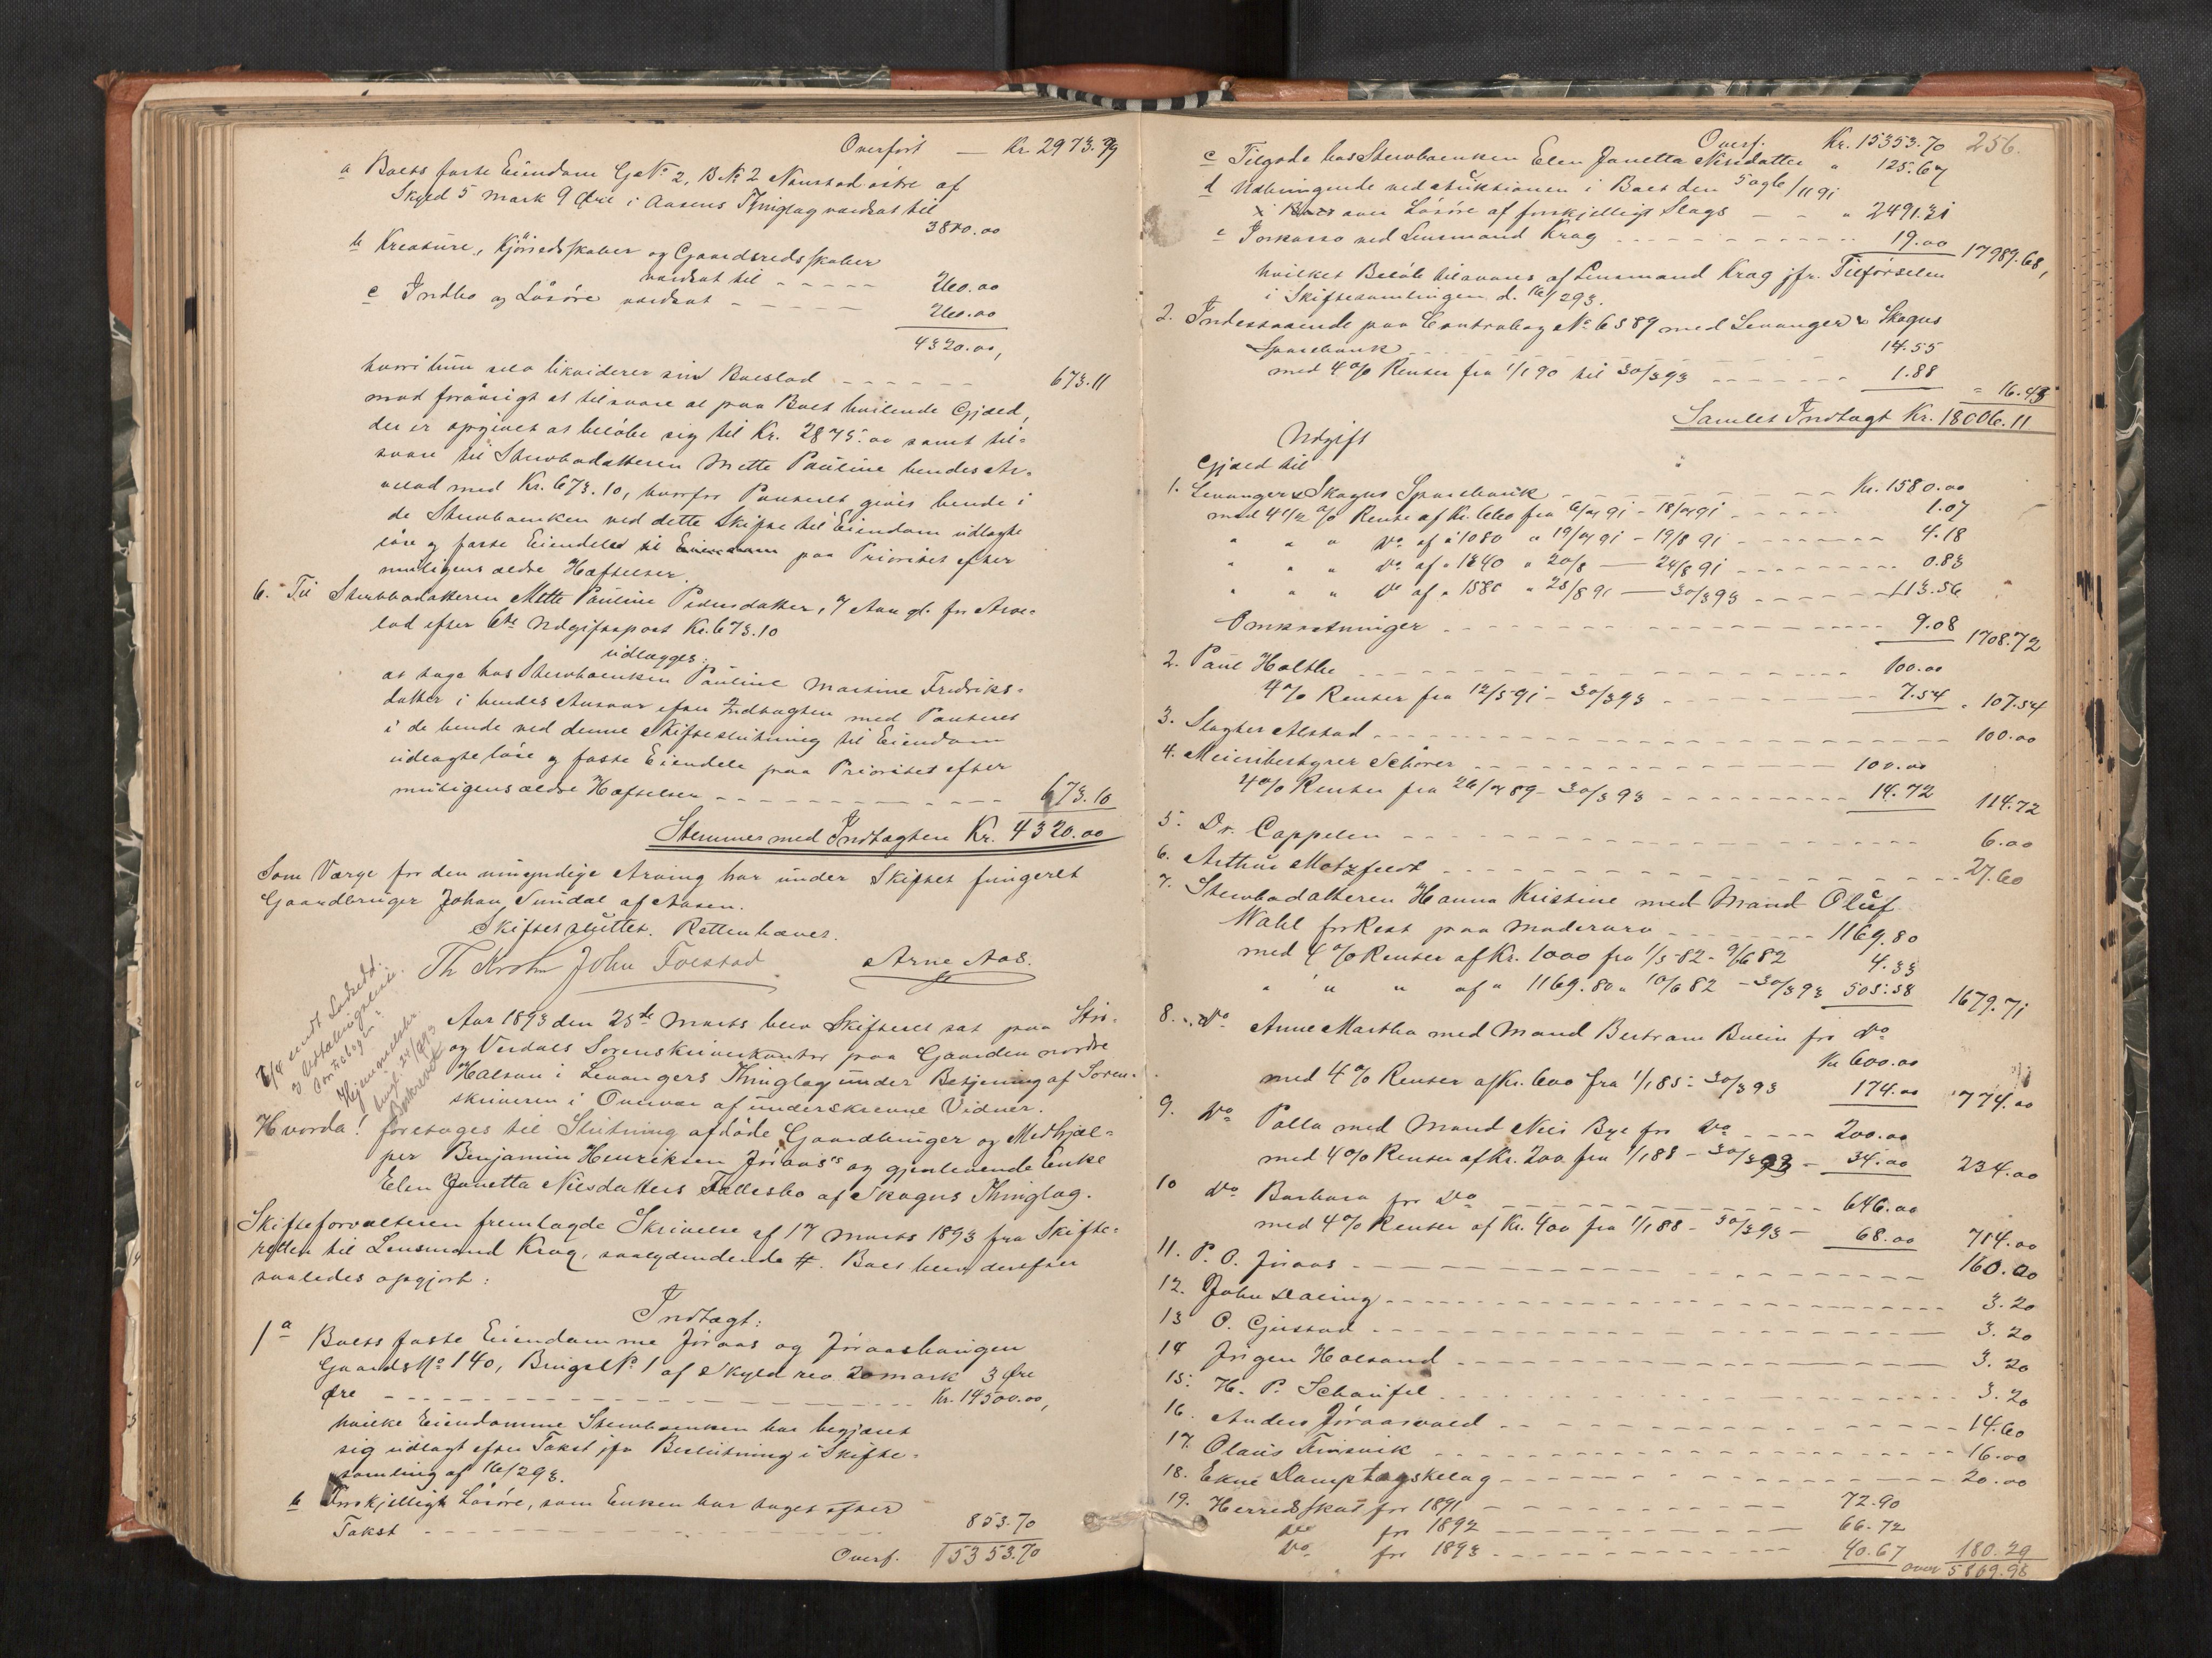 Overført — Kr. 2973.79
a Boets faste Eiendom G.No 2, B.No 2 Nonstad østre af
Skyld 5 Mark 9 Øre i Aasens Thinglag vurdert til
3800.00
b Kreature, Kjøreredskaber og Gaardsredskaber
vurdert til - - - - - 260.00
c Indbo og Løsøre vurdert - - - - 260.00
4320.00,
hvori hun selv likviderer sin Boeslod - - - - - - 673.11
mod forøvrigt at tilsvare al paa Boet hvilende Gjæld,
der er opgivet at beløbe sig til Kr. 2875.00 samt til-
svare til Stervbodatteren Mette Pauline hendes Ar-
velod med Kr. 673.10, hvorfor Panteret gives hende i
de Stervboenken ved dette Skifte til Eiendom udlagte
løse og faste Eiendele paa Prioritet efter
muligens ældre Hæftelser.
6. Til Stervbodatteren Mette Pauline Pedersdatter, 7 Aar gl. for Arve-
lod efter 6te Udgiftspost Kr. 673.10
udlægges:
at tage hos Stervboenken Pauline Martine Fredriks-
datter i hendes Ansvar efter Indtægten med Panteret
i de hende ved denne Skifteslutning til Eiendom
udlagte løse og faste Eiendele paa Prioritet efter
muligens ældre Hæftelser - - - - - - - - - - - - 673.10
Stemmer med Indtægten Kr. 4320.00
Som Værge for den umyndige Arving har under Skiftet fungeret
Gaardbruger Johan Sundal af Aasen.
Skiftet sluttet. Retten hævet.
Th Krohn John Forstad Arne Aas.
Aar 1893 den 25de Marts blev Skifteret sat paa Stør-
og Verdals Sorenskriverkontor paa Gaarden nordre
Halsan i Levangers Thinglag under Betjening af Soren-
skriveren i Overvær af underskrevne Vidner.
Hvorda! foretoges til Slutning afdøde Gaardbruger og Medhjæl-
per Benjamin Henriksen Jøraas's og gjenlevende Enke
Elen Janetta Nilsdatters Fællesbo af Skognes Thinglag.
Skifteforvalteren fremlagde Skrivelse af 17 Marts 1893 fra Skifte-
retten til Lensmand Krag, saalydendende #. Boet blev derefter
saaledes opgjort:
Indtægt:
1 a Boets faste Eiendomme Jøraas og Jøraashaugen
Gaards No 140, Brugs No 1 af Skyld rev. 20 mark 3 Øre
Øre - - - - - - - - - - - - - - Kr. 14500.00,
hvilke Eiendomme Stervboenken har begjæret
sig udlagt efter Takst jfr Beslutning i Skifte-
samling af 16/2 93.
b Forskjelligt Løsøre, som Enken har taget efter
Takst - - - - - - - - - - - - - - 853.70
Overf. 15353.70
Overf. Kr. 15353.70 256.
c Tilgode hos Stervboenken Elen Janetta Nilsdatter " 125.67
d Udbringende ved Auktionen i Boet den 5 og 6/11 91
over Løsøre af forskjelligt Slags - - " 2491.31
e Inkasso ved Lensmand Krag - - - - - - - - - - 19.00 17989.68,
hvilket Beløb tilsvares af Lensmand Krag jfr. Tilførselen
i Skiftesamlingen d. 16/2 93.
2. Indestaaende paa Contrabog No 6389 med Levanger & Skogns
Sparebank - - - - - - - - - - - - 14.55
med 4% Renter fra 1/1 90 til 30/3 93 - - - - - - 1.88 " 16.43
Samlet Indtægt Kr. 18006.11
Udgift
Gjæld til
1. Levanger & Skogns Sparebank - - - - - - - - - Kr. 1580.00
med 4 1/2 % Rente af Kr. 660 fra 6/7 91 - 18/7 91 - - - - - - 1.07
" " " Do af " 1080 " 19/7 91 - 19/8 91 - - - - - - - 4.18
" " " Do af " 1340 " 20/8 — 24/8 91 - - - - - - - - 0.83
" " " Do af " 1580 " 25/8 91 — 30/3 93 - - - - - - 113.56
Omkostninger - - - - - - - - - - - - - - - 9.08 1708.72
2. Paul Holthe - - - - - - - - - - - - - - - 100.00
4% Renter fra 12/5 91 - 30/3 93 - - - - - - - 7.54 " 107.54
3. Slagter Alstad - - - - - - - - - - - - - - - - - 100.00
4. Meieribestyrer Schører - - - - - - - - - - - 100.00
4% Renter fra 26/7 89 - 30/3 93 - - - - - - - - 14.72 114.72
5. Dr. Cappelen - - - - - - - - - - - - - - - - 6.00
6. Arthur Motzfeldt - - - - - - - - - - - - - - - 27.60
7. Stervbodatteren Hanna Kristine med Mand Oluf
Wahl for Rest paa Moderarv - - - - - - - 1169.80
med 4% Renter af Kr. 1000 fra 1/5 82 - 9/6 82 4.33
" " " af " 1169.80 " 10/6 82 - 30/3 93 505.58 1679.71
8. Do Anne Martha med Mand Bertram Buein for Do
Kr 600.00
med 4% Renter af Kr. 600 fra 1/1 85 - 30/3 93 174.00 774.00
9. Do Polla med Mand Nils Bye for Do - - - - 200.00
med 4% Renter af Kr. 200 fra 1/1 88 - 30/3 93 - 34.00 234.00
10 Do Barbara for Do - - - - - - - - - - - 646.00
med 4% Renter af Kr. 400 fra 1/1 88 - 30/3 93 - 68.00 714.00
11. P. O. Jøraas - - - - - - - - - - - - - - - - 160.00
12. John Daling - - - - - - - - - - - - - - - - 3.20
13 O. Gjustad - - - - - - - - - - - - - - - - 3.20
14 Jørgen Halsand - - - - - - - - - - - - - - 3.20
15. H. P. Schaufel - - - - - - - - - - - - - - - 3.20
16. Anders Jøraasvald - - - - - - - - - - - - - 14.60
17. Olaus Finsvik - - - - - - - - - - - - - - - 16.00
18. Ekne Damptøgskelag - - - - - - - - - - - - 20.00
19. Herredsskat for 1891 - - - - - - - - - 72.90
Do for 1892 - - - - - - - - - 66.72
Do for 1893 - - - - - - - - - 40.67 180.29
over 5869.98